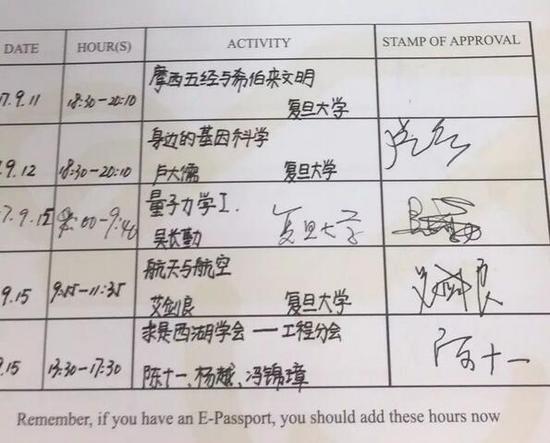 DATE HOUR(S) ACTIVITY STAMP OF APPROVAL
7.9.11 18:30-20:10 摩西五经与希伯来文明
复旦大学
9.12 18:30-20:10 身边的基因科学
卢大儒 复旦大学
7.9.15 8:00-9:40 量子力学I.
吴长勤 复旦大学
9.15 9:55-11:35 航天与航空
艾剑良 复旦大学
9.15 13:30-17:30 求是西湖学会——工程分会
陈十一、杨越、冯锦璋 陈十一
Remember, if you have an E-Passport, you should add these hours now